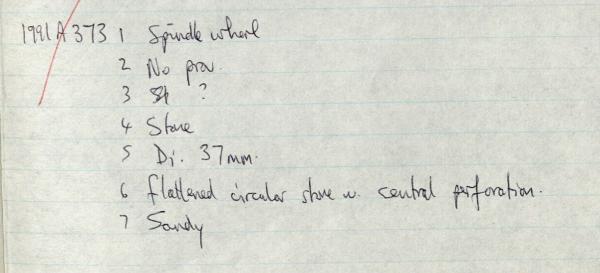 1991 A 373 1 Spindle whorl
2 No prov.
3 ?
4 Stone
5 Di. 37mm.
6 flattened circular stone w. central perforation.
7 Sandy